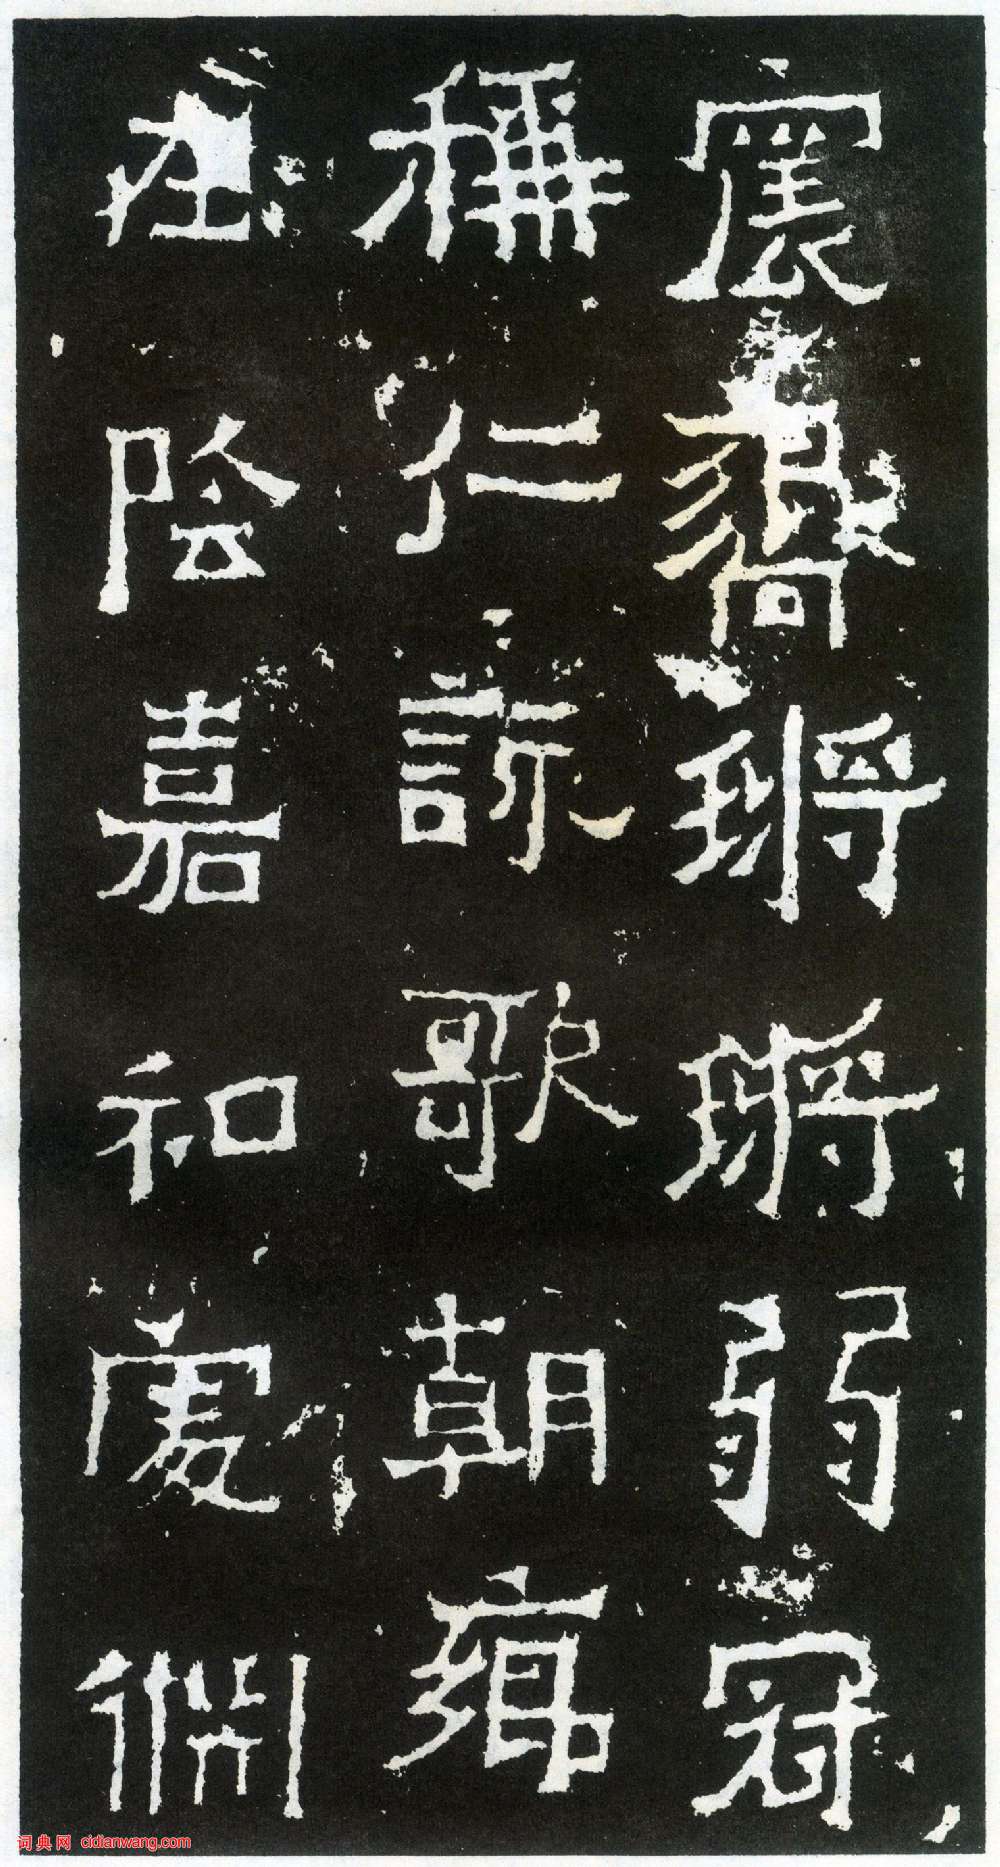 震響鏘鏘弱冠
稱仁詠歌朝鄉
在陰嘉和處淵
词典网 cidianwang.com